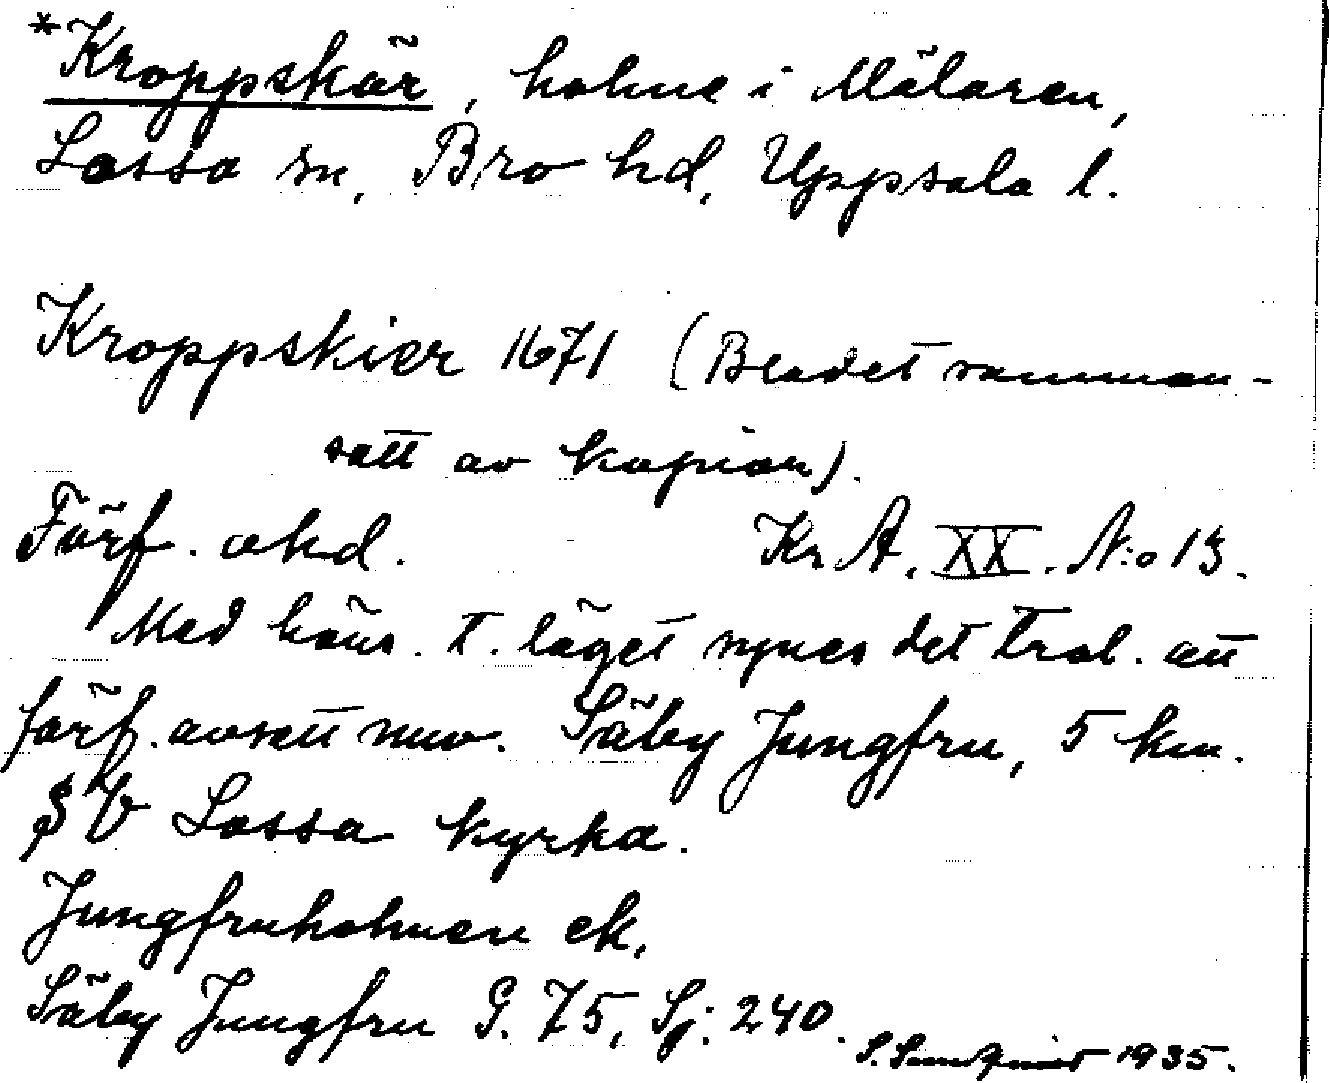 *Kroppskär, holme i Mälaren,
Lossa sn, Bro hd, Uppsala l.
Kroppskier 1671 (Bladet samman-
satt av kopior).
Förf. okd. Kr A. XX. N:o 13.
Med häns. t. läget synes det trol. att
förf. avsett nuv. Säby Jungfru, 5 km.
SV Lossa kyrka.
Jungfruholmen ek,
Säby Jungfru G. 75, Sj. 240.
1935.